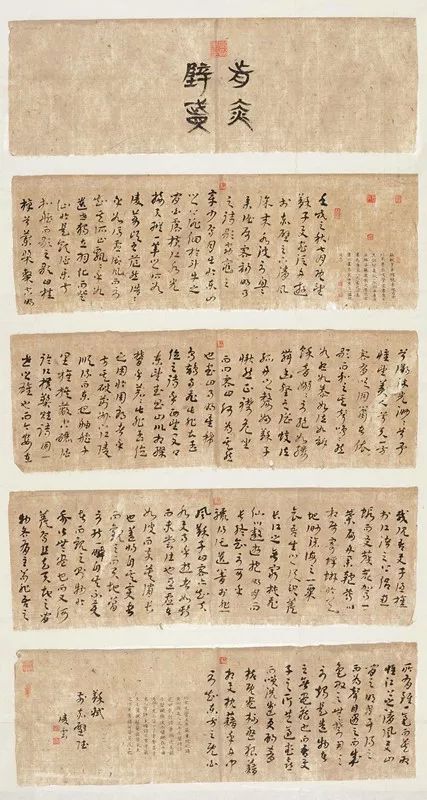 前赤
壁賦
壬戌之秋七月既望
蘇子與客泛舟遊
於赤壁之下清風
徐來水波不興
舉酒屬客誦明月
之詩歌窈窕之
章少焉月出於東山
之上徘徊於斗牛之
間白露橫江水光
接天縱一葦之所如
凌萬頃之茫然浩浩
乎如馮虛御風而不
知其所止飄飄乎如
遺世獨立羽化而登
仙於是飲酒樂甚
扣舷而歌之歌曰桂
棹兮蘭槳擊空明
兮溯流光渺渺兮予
懷望美人兮天一方
客有吹洞簫者倚
歌而和之其聲嗚嗚
然如怨如慕如泣如訴
餘音嫋嫋不絕如縷
舞幽壑之潛蛟泣
孤舟之嫠婦蘇子
愀然正襟危坐
而問客曰何為其然
也客曰月明星稀
烏鵲南飛此非曹孟
德之詩乎西望夏口
東望武昌山川相繆
鬱乎蒼蒼此非孟德
之困於周郎者乎
方其破荊州下江陵
順流而東也舳艫千
里旌旗蔽空釃酒
臨江橫槊賦詩固一
世之雄也而今安在
哉況吾與子漁樵
於江渚之上侶魚
蝦而友麋鹿駕一
葉之扁舟舉匏樽以
相屬寄蜉蝣於天
地渺滄海之一粟
哀吾生之須臾羨
長江之無窮挾飛
仙以遨遊抱明月而
長終知不可乎驟
得託遺響於悲
風蘇子曰客亦知夫水
與月乎逝者如斯
而未嘗往也盈虛者
如彼而卒莫消長
也蓋將自其變者
而觀之則天地曾
不能以一瞬自其不變
者而觀之則物與
我皆無盡也而又何
羨乎且夫天地之間
物各有主苟非吾之
所有雖一毫而莫取
惟江上之清風與山
間之明月耳得之
而為聲目遇之而成
色取之無禁用之
不竭是造物者
之無盡藏也而吾與
子之所共適客喜
而笑洗盞更酌肴
核既盡杯盤狼藉
相與枕藉乎舟中
不知東方之既白
蘇軾
前赤壁賦